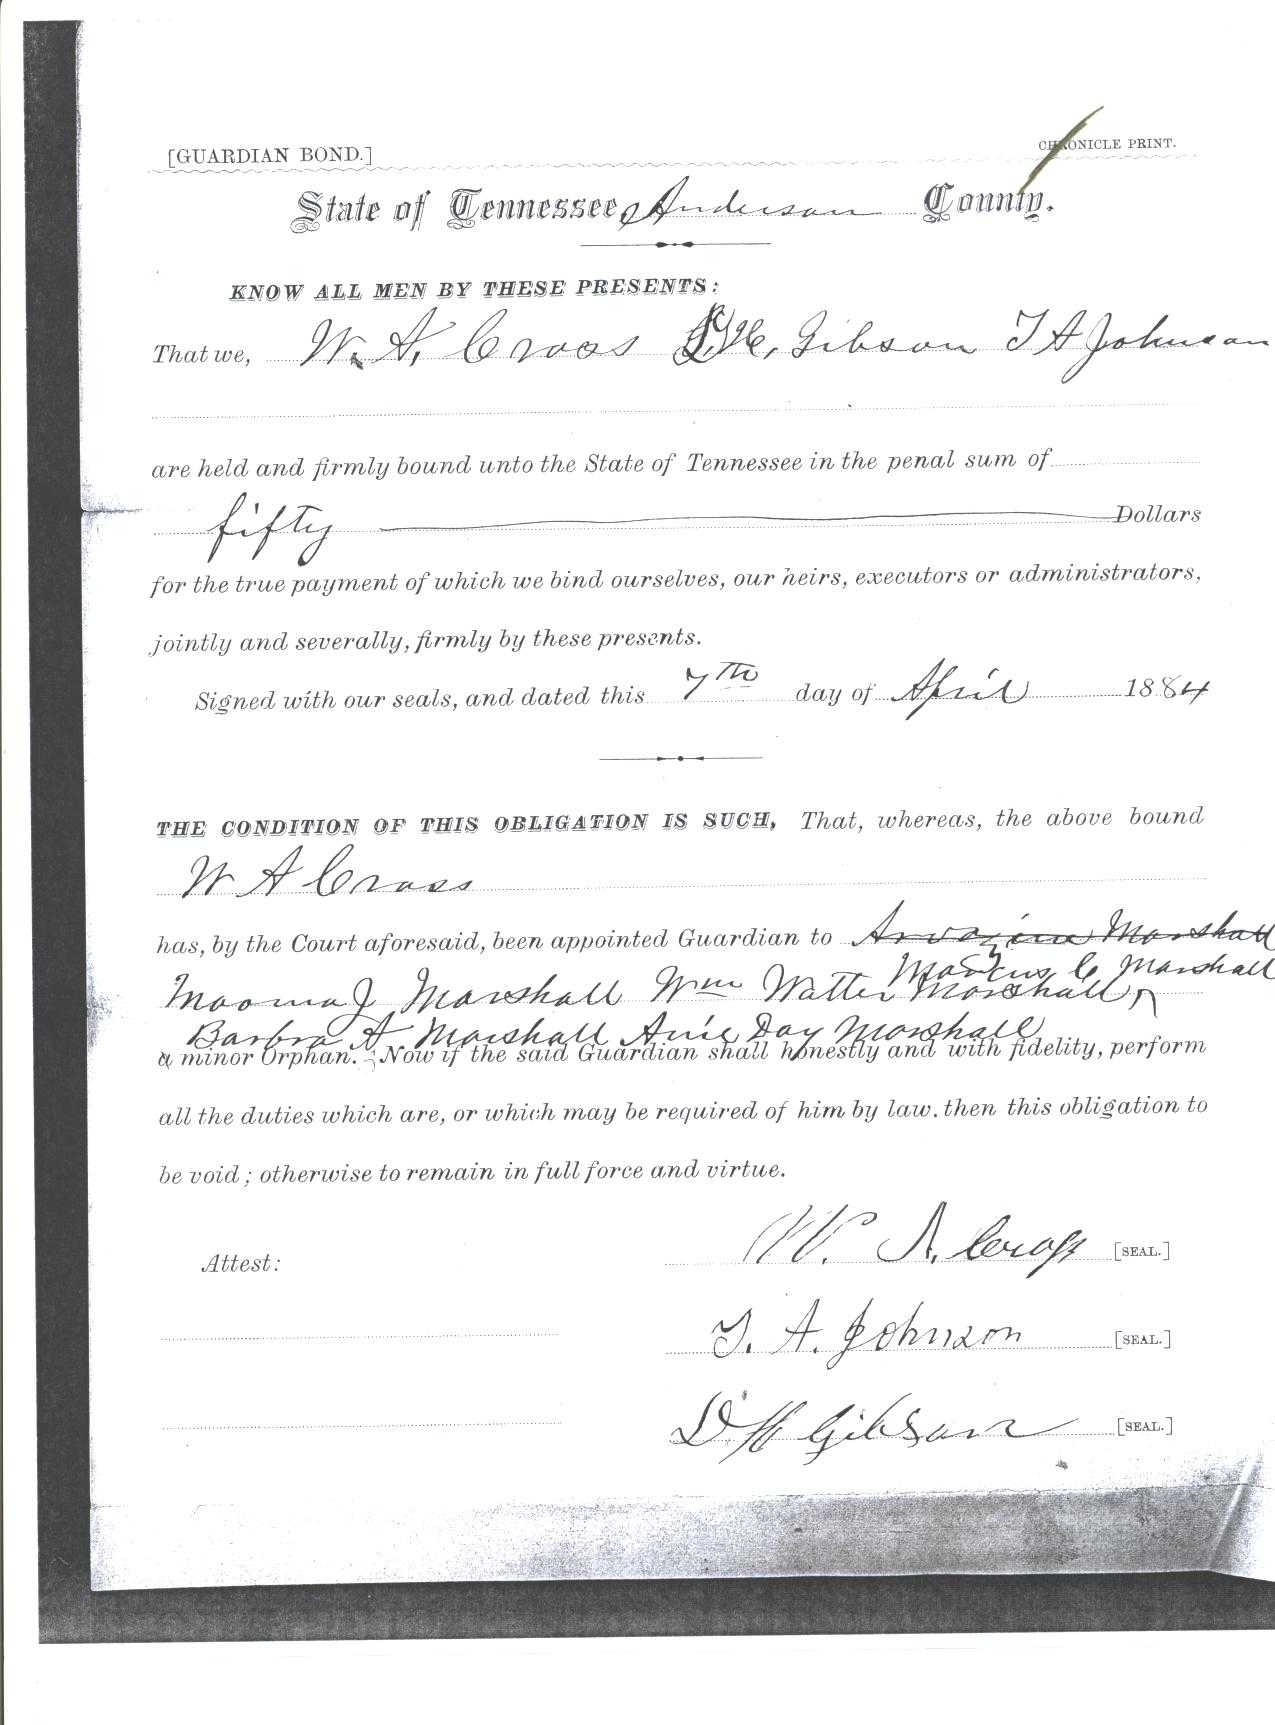 [GUARDIAN BOND.] CHRONICLE PRINT.
State of Tennessee, Anderson County.
KNOW ALL MEN BY THESE PRESENTS:
That we, W. A. Cross H. Gibson T A Johnson
are held and firmly bound unto the State of Tennessee in the penal sum of
fifty Dollars
for the true payment of which we bind ourselves, our heirs, executors or administrators,
jointly and severally, firmly by these presents.
Signed with our seals, and dated this 7th day of April 1884
THE CONDITION OF THIS OBLIGATION IS SUCH, That, whereas, the above bound
W A Cross
has, by the Court aforesaid, been appointed Guardian to Marshall
Marcus C Marshall
J Marshall Wm Walter Marshall,
Barbra A Marshall Anie Day Marshall
a minor Orphan. Now if the said Guardian shall honestly and with fidelity, perform
all the duties which are, or which may be required of him by law. then this obligation to
be void; otherwise to remain in full force and virtue.
W. A. Cross [SEAL.]
Attest:
T. A. Johnson [SEAL.]
D H Gibson [SEAL.]